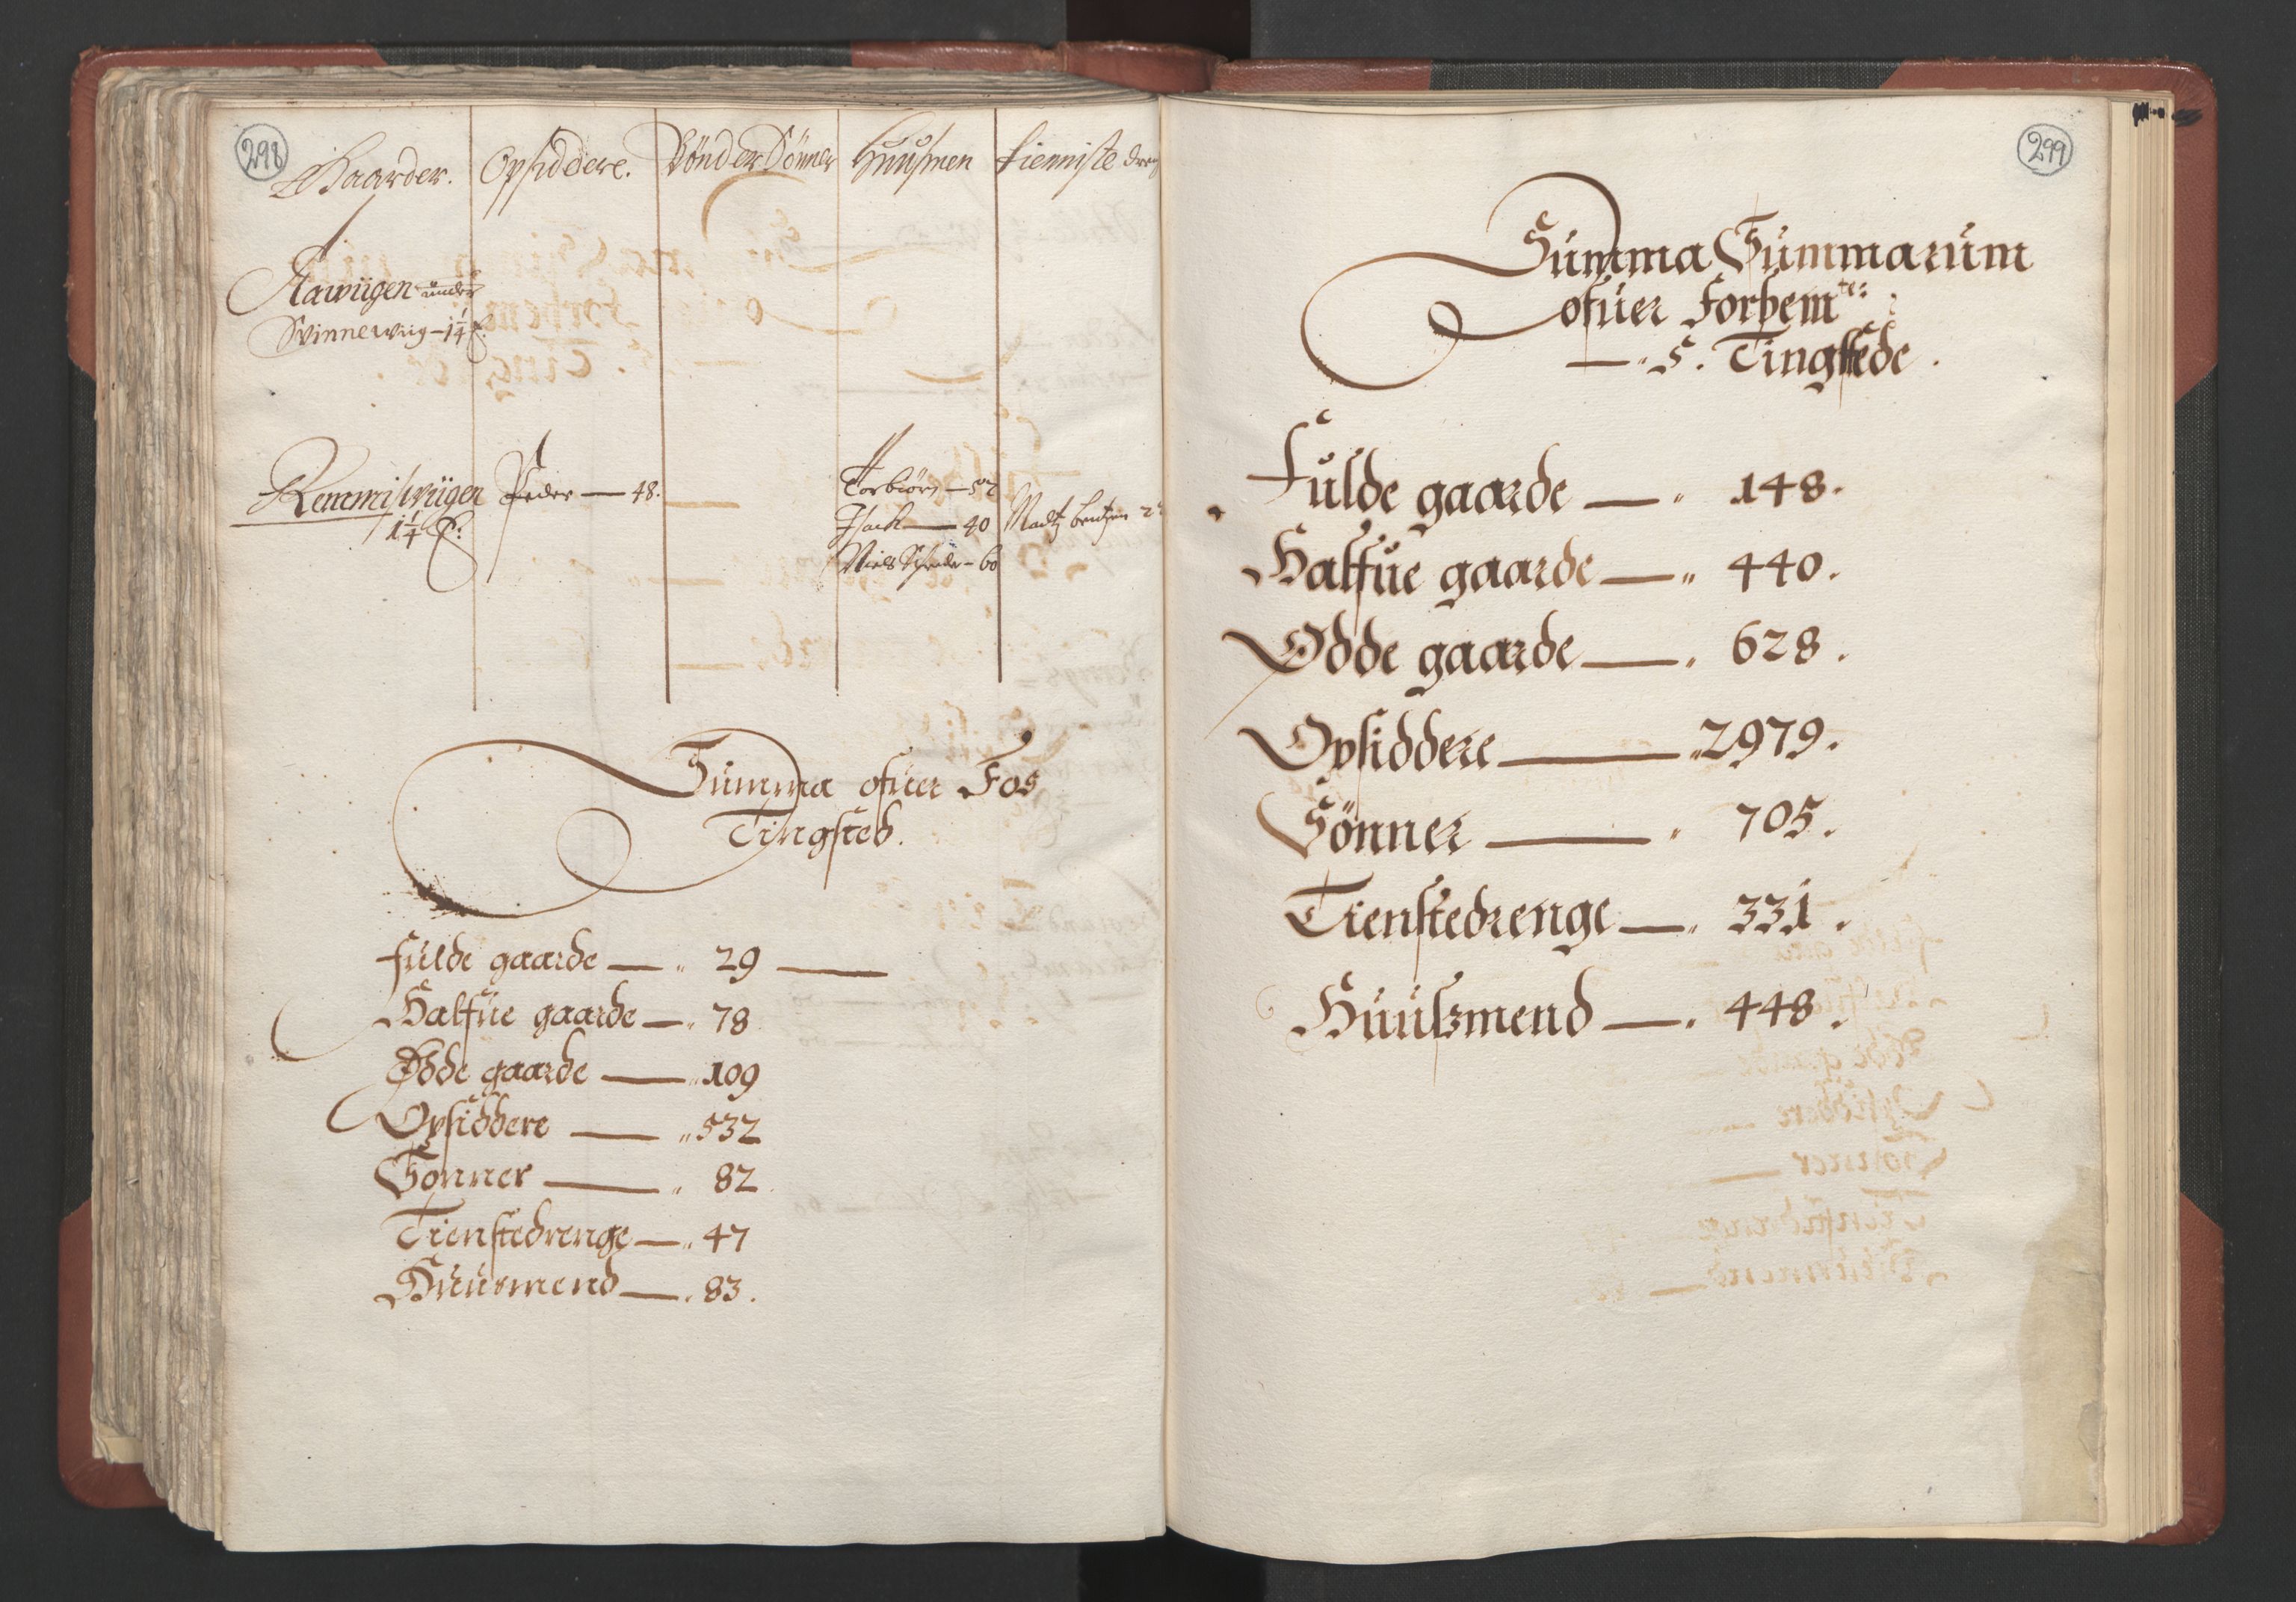 298
Gaarder. Opsiddere. Bönder Sönner Huusmen tienniste dren
Aawiigen under
Svinnewiig - 1¼
Remmiswiigen Peder — 48. — Torbiörn — 52
1¼ Isach — 40 Madtz bentzen 2
Niels — 60
Summa ofuer Fos
Tingsted.
fulde gaarde — 29 —
Halfue gaarde — 78
Øde gaarde — 109
Opsiddere — 532
Sønner — 82
Tienstedrenge — 47
Huusmend — 83.
299
Summa Summarum
ofuer forbemte:
— 5. Tingstede.
Fulde gaarde — 148.
Halfue gaarde — 440.
Ødde gaarde — 628.
Opsiddere — 2979.
Sönner — 705.
Tienstedrenge — 331.
Huuszmend — 448.